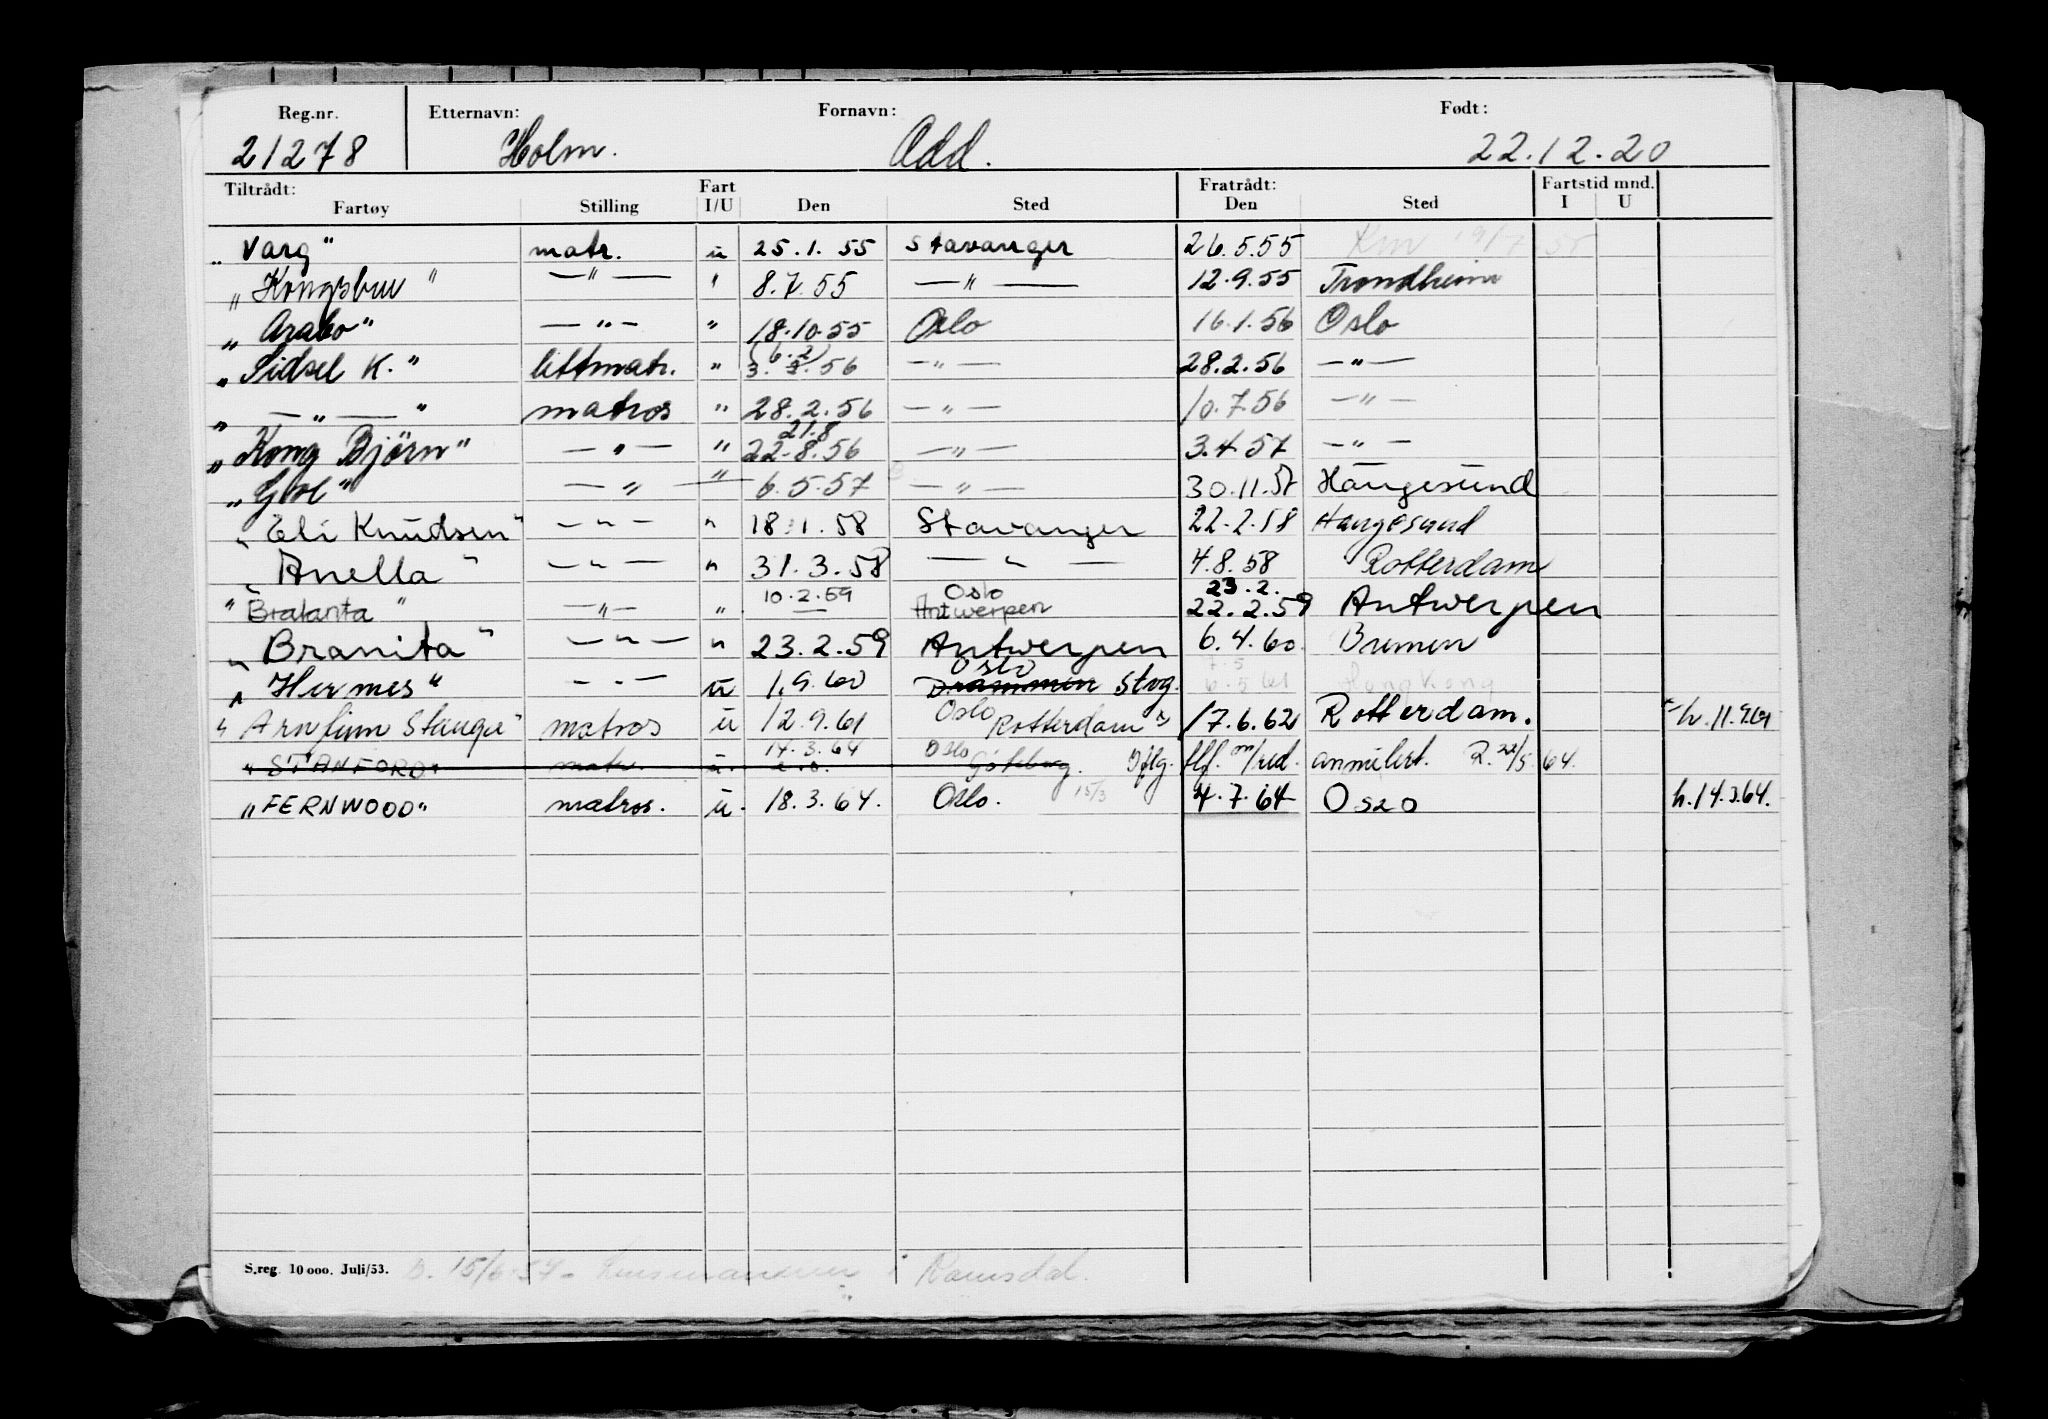 Reg.nr. Etternavn: Fornavn: Født:
21278 Holm. Odd. 22.12.20
Tiltrådt: Fart Fratrådt: Fartstid mnd.
Fartøy Stilling I/U Den Sted Den Sted I U
"Varg" matr. u 25.1.55 Stavanger 26.5.55
"Kongsbru" —"— " 8.7.55 —"— 12.9.55 Trondheim
"Arabo" —"— " 18.10.55 Oslo 16.1.56 Oslo
(6.2)
"Sidsel K." lettmatr. " 3.2.56 —"— 28.2.56 —"—
"—"—" matros " 28.2.56 —"— 10.7.56 —"—
21.8
"Kong Bjørn" —"— " 22.8.56 —"— 3.4.57 —"—
"Gol" —"— " 6.5.57 —"— 30.11.57 Haugesund
"Eli Knudsen" —"— " 18.1.58 Stavanger 22.2.58 Haugesund
"Anella" —"— " 31.3.58 —"— 4.8.58 Rotterdam
10.2.59 Oslo 23.2.
"Bralanta" —"— " — Antwerpen 22.2.59 Antwerpen
"Branita" —"— " 23.2.59 Antwerpen 6.4.60 Bremen
Oslo 7.5
"Hermes" —"— u 1.9.60 Drammen Stvg. 6.5.61 Hong Kong
Oslo
"Arnfinn Stange" matros u 12.9.61 Rotterdam 17.6.62 Rotterdam. h. 11.9.61
14.3.64 Oslo
"STANFORD" matr. u. Göteborg. tlf. m/red. annulert. R. 22/5.64.
"FERNWOOD" matros. u. 18.3.64. Oslo. 15/3 4.7.64 Oslo h.14.3.64.
S.reg. 10 000. Juli/53. Ramsdal.